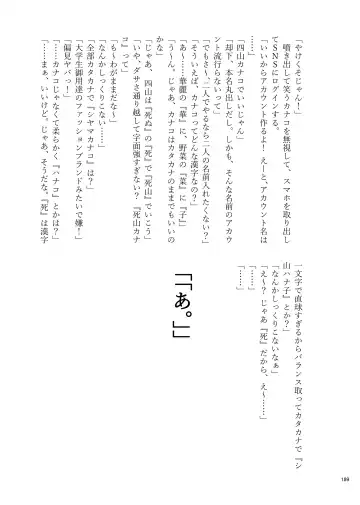 「やけくそじゃん！」
噴き出して笑うカナコを無視して、スマホを取り出し
てSNSにログインする。
「いいからアカウント作るよ！　えーと、アカウント名は
「四山カナコでいいじゃん」
「却下、本名丸出しだし。しかも、そんな名前のアカウ
ント流行らないって」
「でもさ～、二人でやるなら二人の名前入れたくない？」
「そういえば、カナコってどんな漢字なの？」
「あ～……華麗の『華』に、野菜の『菜』に『子』」
「う～ん。じゃあ、カナコはカタカナのままでもいいの
かな」
「じゃあ、四山は『死ぬ』の『死』で『死山』でいこう
「いや、ダサさ通り越して字面強すぎない？『死山カナ
コ』って」
「もうわがままだな～」
「なんかしっくりこない」
「全部カタカナで『シヤマカナコ』は？」
「大学生御用達のファッションブランドみたいで嫌！」
「偏見ヤバっ！」
「……カナコじゃなくて柔らかく『ハナコ』とかは？」
「……まぁ、いいけど。じゃあ、そうだな。『死』は漢字
一文字で直球すぎるからバランス取ってカタカナで『シ
山ハナ子』とか？」
「なんかしっくりこないなぁ」
「え～？じゃあ『死』だから、え～……」
「……」
「……」
「「あ。」」
189